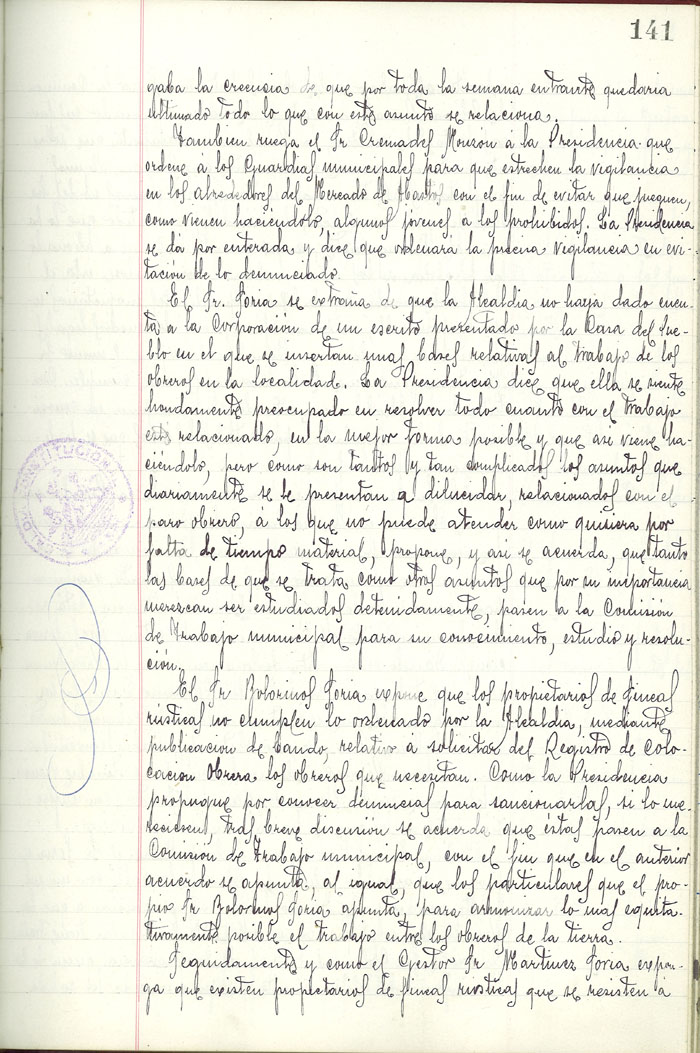 141
gaba la creencia de que por toda la semana entrante quedaria
ultimado todo lo que con este asunto se relaciona.
Tambien ruega el Sr Cremades Monzon á la Presidencia que
ordene á los Guardias municipales para que estrechen la vigilancia
en los alrededores del Mercado de Abastos con el fin de evitar que jueguen,
como vienen haciéndolo, algunos jovenes a los prohibidos. La Presidencia
se dá por enterada y dice que ordenara la precisa vigilancia en evi-
tación de lo denunciado.
El Sr. Soria se extraña de que la Alcaldia no haya dado cuen-
ta a la Corporación de un escrito presentado por la Casa del Pue-
blo en el que se insertan unas bases relativas al trabajo de los
obreros en la localidad. La Presidencia dice que ella se siente
hondamente preocupado en resolver todo cuanto con el trabajo
esté relacionado, en la mejor forma posible y que asi viene ha-
ciéndolo, pero como son tantos y tan complicados los asuntos que
diariamente se le presentan a dilucidar, relacionados con el
paro obrero, á los que no puede atender como quisiera por
falta de tiempo material, propone, y asi se acuerda, que tanto
las bases de que se trata como otros asuntos que por su importancia
merezcan ser estudiados detenidamente, pasen a la Comisión
de Trabajo municipal para su conocimiento, estudio y resolu-
ción.
El Sr Bolorinos Soria expone que los propietarios de fincas
rústicas no cumplen lo ordenado por la Alcaldia, mediante
publicacion de bando, relativo á solicitar del Registro de Colo-
cacion Obrera los obreros que necesitan. Como la Presidencia
propugne por conocer denuncias para sancionarlas, si lo me-
reciesen, tras breve discusión se acuerda que éstas pasen a la
Comisión de Trabajo municipal, con el fin que en el anterior
acuerdo se apunta, al igual, que los particulares que el pro-
pio Sr Bolorinos Soria apunta, para armonizar lo mas equita-
tivamente posible el trabajo entre los obreros de la tierra.
Seguidamente y como el Gestor Sr Martinez Soria expon-
ga que existen propietarios de fincas rústicas que se resisten á